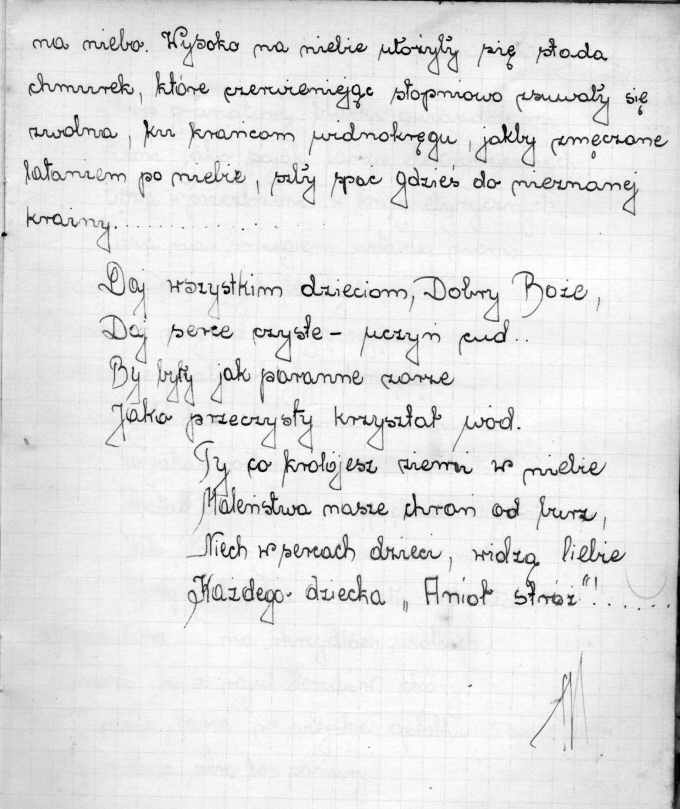 na niebo. Wysoko na niebie ułożyły się stada
chmurek, które czerwieniejąc stopniowo zsuwały się
zwolna, ku krańcom widnokręgu, jakby zmęczone
lataniem po niebie, szły spać gdzieś do nieznanej
krainy..............
Daj wszystkim dzieciom, Dobry Boże,
Daj serce czyste – uczyń cud..
By były jak poranne zorze
Jako przeczysty kryształ wód.
Ty co królojesz ziemi w niebie
Maleństwa nasze chroń od burz,
Niech w sercach dzieci, widzą Ciebie
Każdego dziecka „Anioł stróż"!......